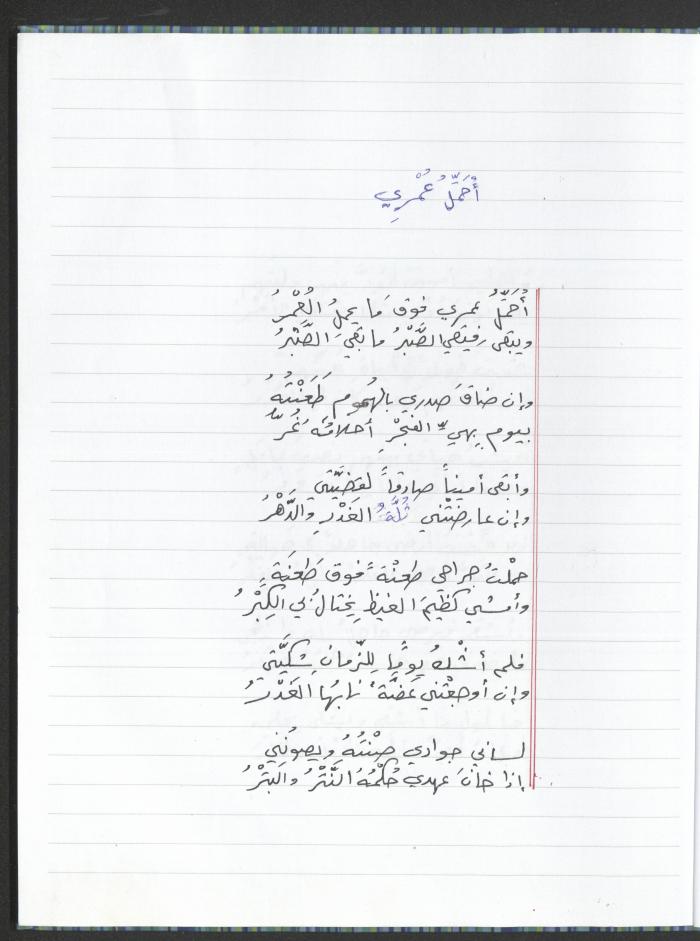 أُحَمِّلُ عُمْرِي
أُحَمِّلُ عمري فوقَ مَا يحملُ العُمْرُ
ويبقى رفيقي الصَّبْرُ ما بَقِيَ الصَّبْرُ
وإن ضاقَ صدري بالهُموم طَعَنْتُهُ
بيومٍ بهيِّ الفجْرِ أحلامُهُ غُرُّ
وأبقى أميناً صادقاً لقضيَّتي
وإن عارضَتْني ثُلَّةُ الغَدْرِ والدَّهْرُ
حملْتُ جراحي طعْنَةً فوق طَعنَةٍ
وأمشي كظيمَ الغيظِ يختالُ بي الكِبْرُ
فلم أشْكُ يومًا لِلزّمانِ شِكيَّتي
وإن أوجعَتْني عَضَّةٌ نابُها الغَدْرُ
لساني جوادي صُنْتُهُ ويصونُني
إذا خانَ عهدي حُكْمُهُ النَّتْرُ والبَتْرُ